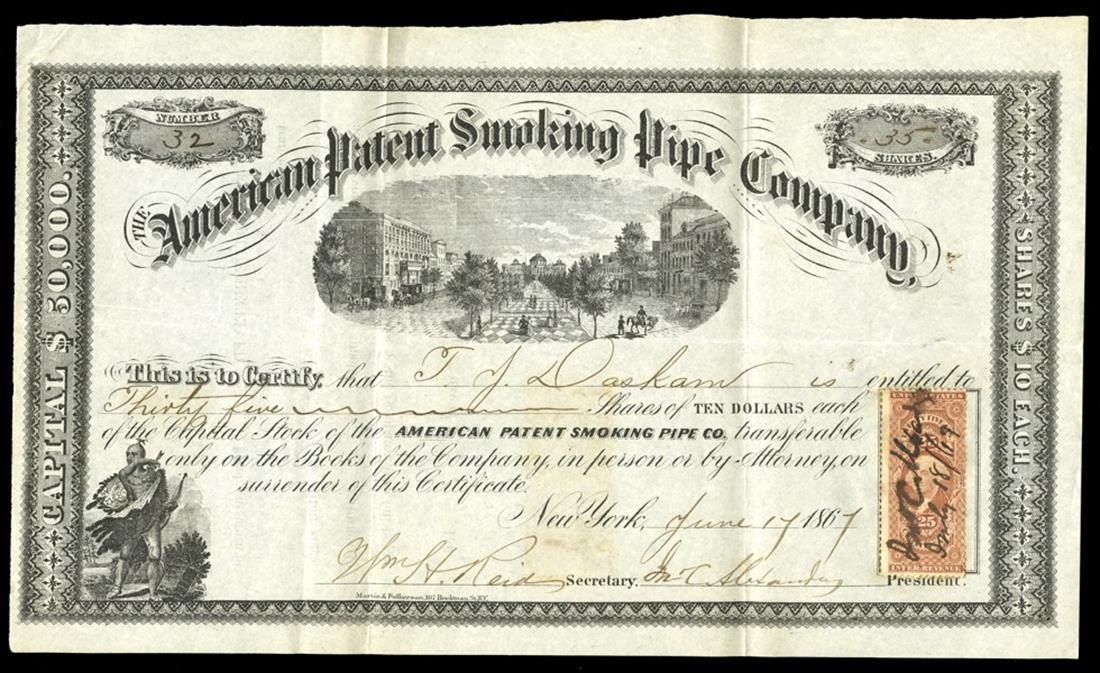 NUMBER
32
35
SHARES.
THE American Patent Smoking Pipe Company,
CAPITAL $ 50,000.
SHARES $ 10 EACH.
This is to Certify, that T. J. Daskam is entitled to
Thirty five Shares of TEN DOLLARS each
of the Capital Stock of the AMERICAN PATENT SMOKING PIPE CO. transferable
only on the Books of the Company, in person or by Attorney, on
surrender of this Certificate.
New York, June 17 1867
Wm H. Reid Secretary. President.
Martin & Fulkerson, 107 Beekman St. N.Y.
UNITED STATES
25
INTER. REVENUE
July 18/69